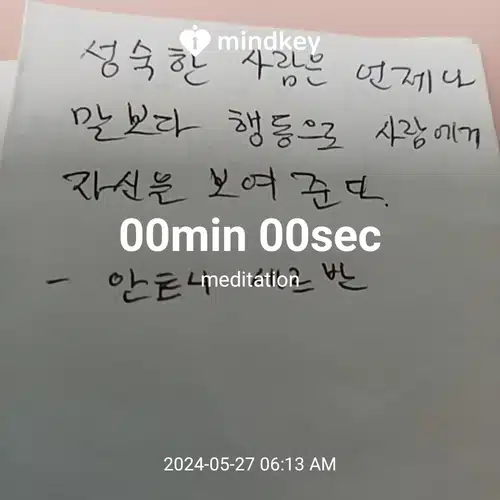 mindkey
성숙한 사람은 언제나
말보다 행동으로 사람에게
자신을 보여 준다.
00min 00sec
- 안토니
meditation
2024-05-27 06:13 AM